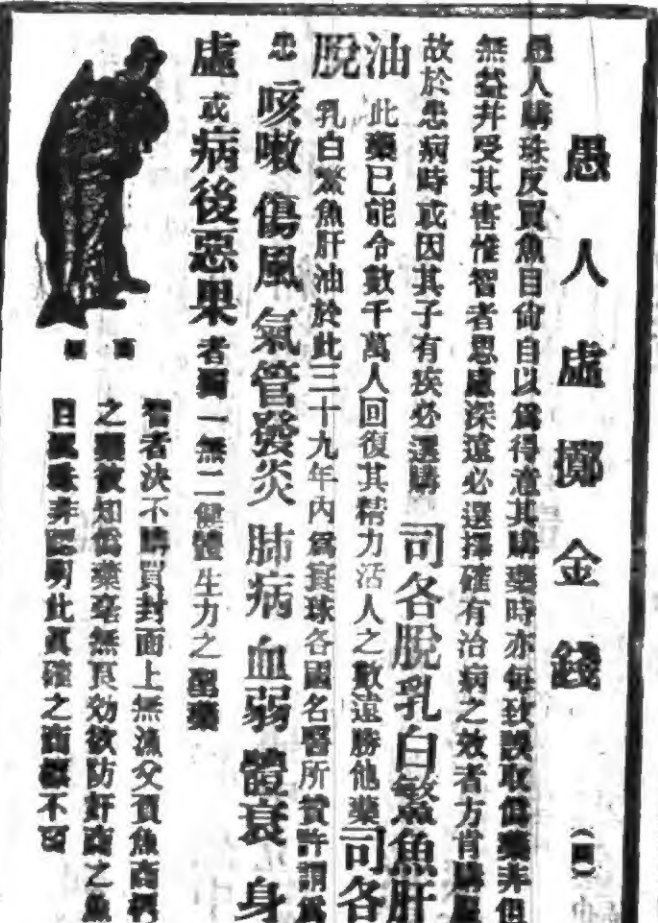 愚人虛擲金錢
愚人購珠反買魚目尙自以爲得意其購藥時亦每致誤取僞藥非但
無益幷受其害惟智者思慮深遠必選擇確有治病之效者方肯購服
故於患病時或因其子有疾必選購 司各脫乳白鰵魚肝
油 此藥已能令數千萬人回復其精力活人之數遠勝他藥 司各
脫 乳白鰵魚肝油於此三十九年內爲寰球各國名醫所贊許謂爲
患 咳嗽 傷風 氣管發炎 肺病 血弱 體衰 身
虛 或 病後惡果 者獨一無二健體生力之聖藥
商標
智者決不購買封面上無漁父負魚商標
之藥彼知僞藥毫無良効欲防奸商之魚
目混珠非認明此眞確之商標不可